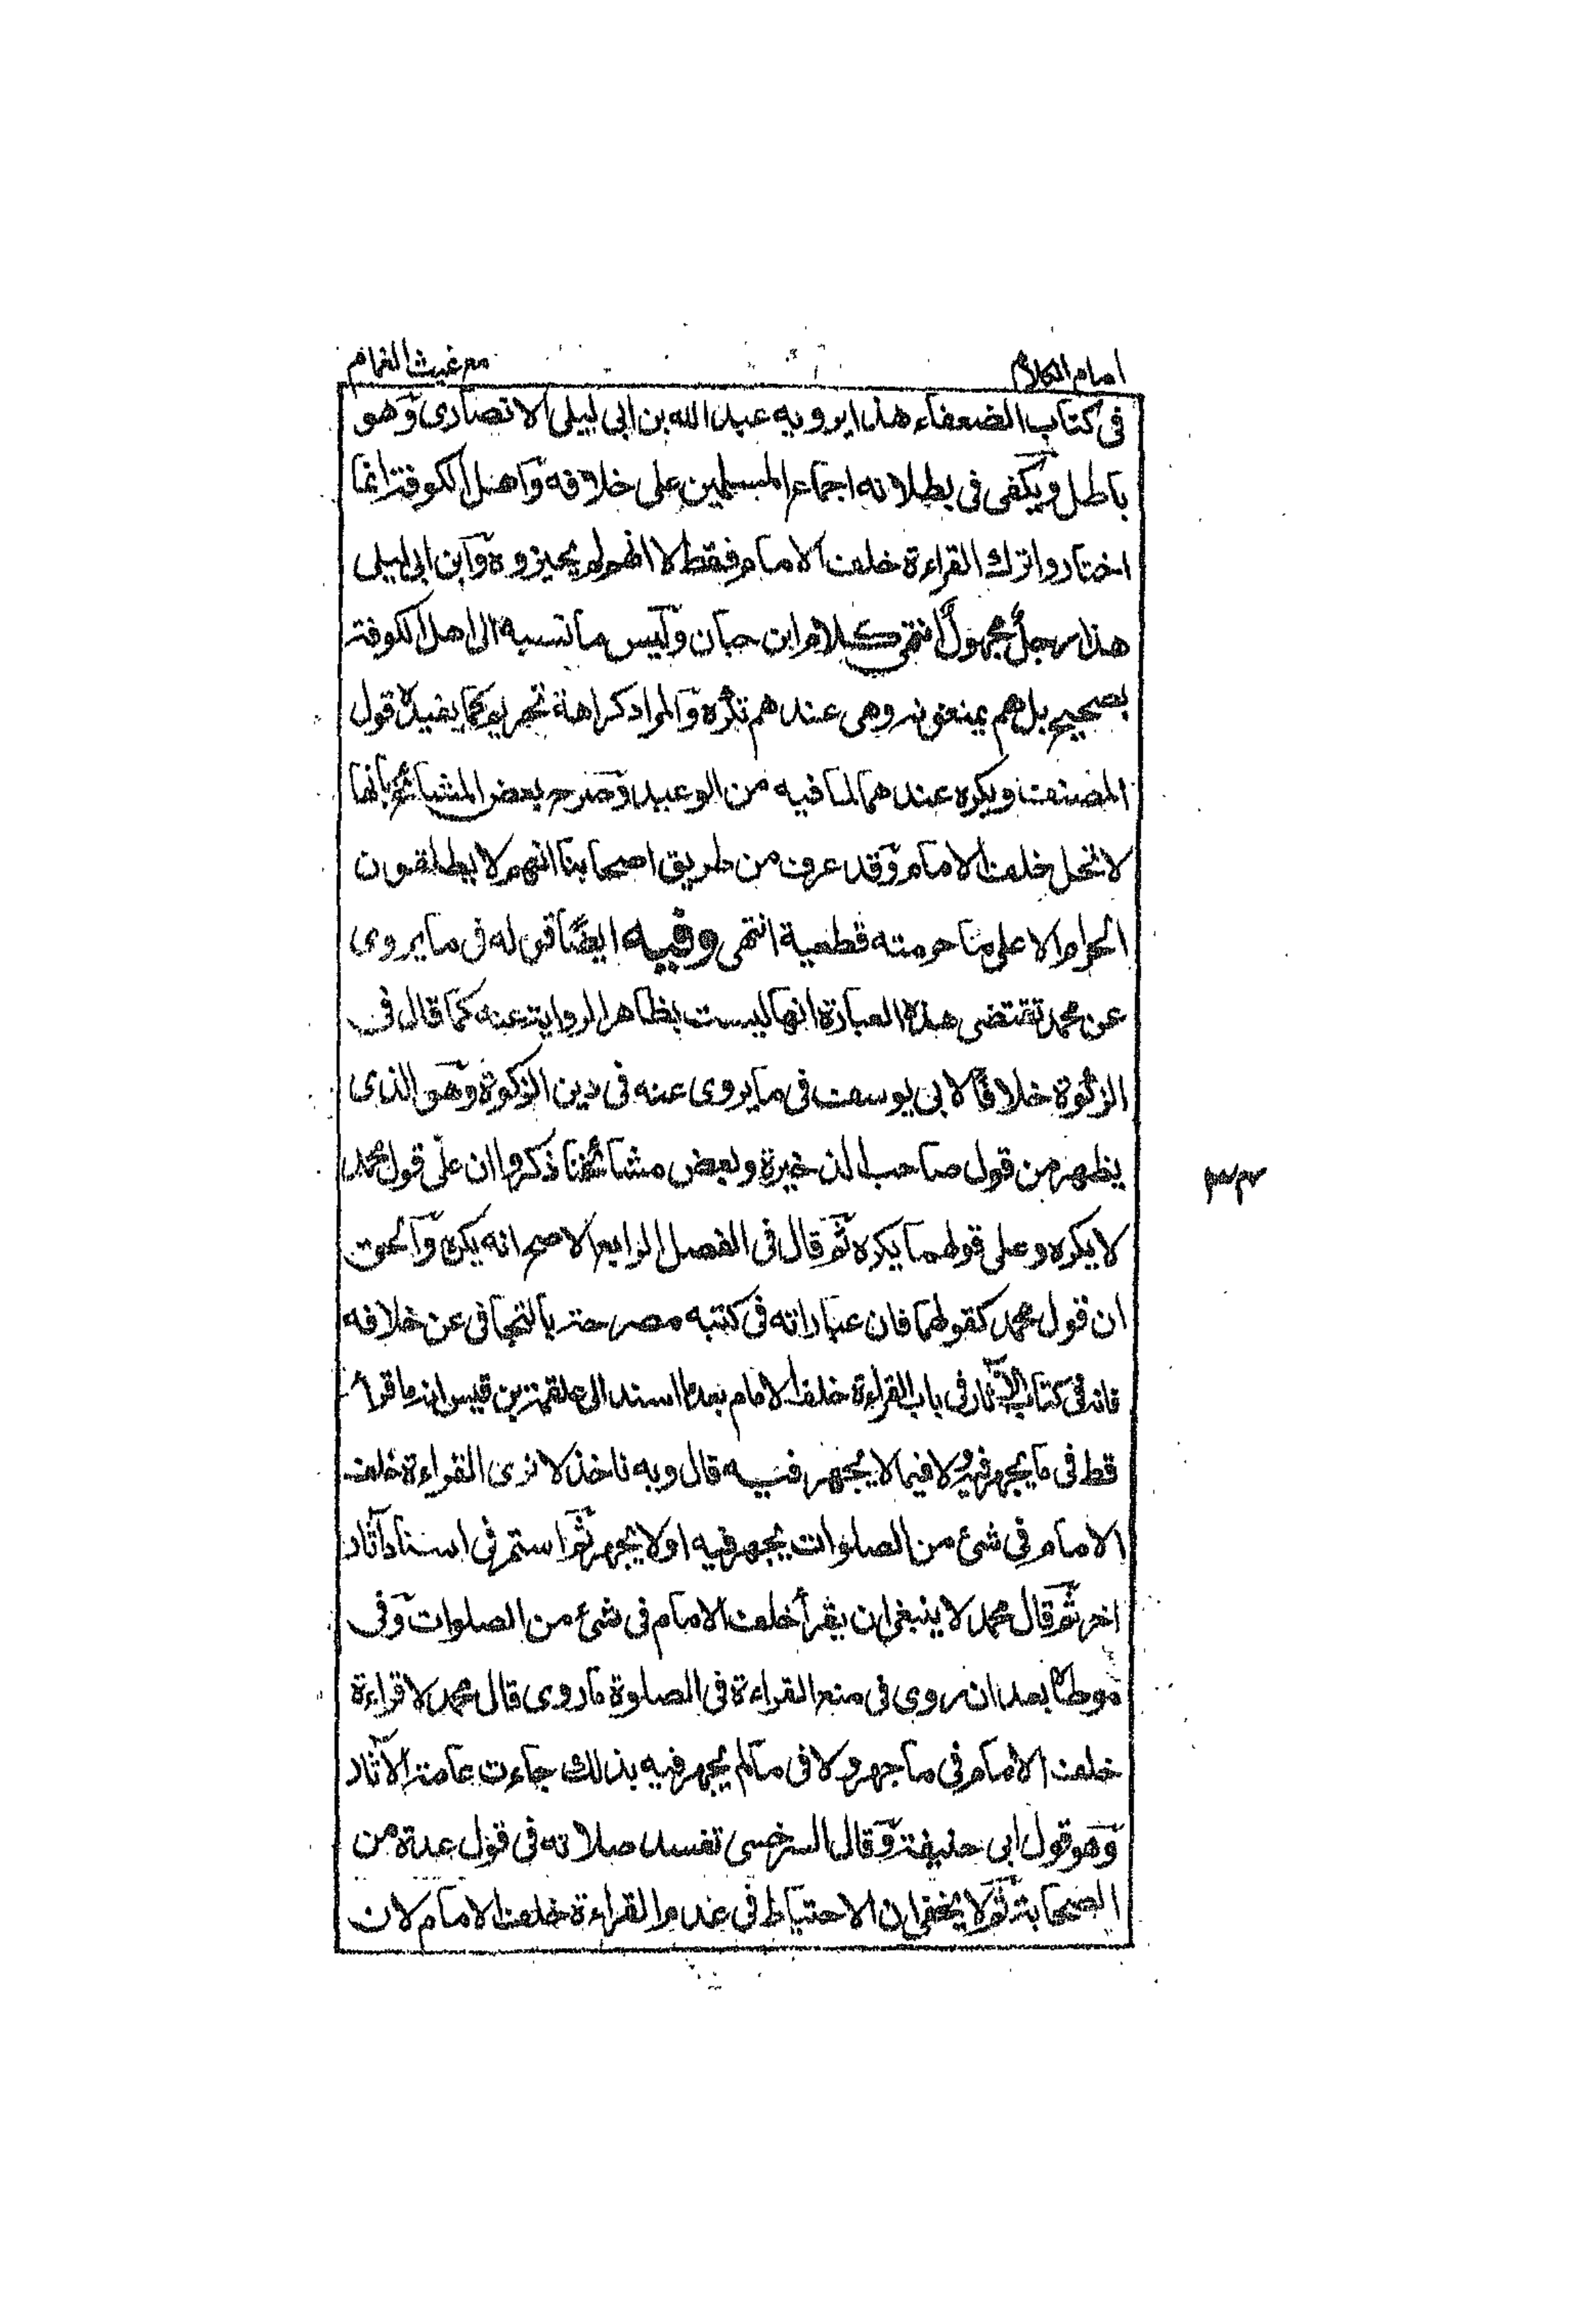 امام الكلام
مع غيث الغمام
فى كتاب الضعفاء هذا يرويه عبد الله بن ابى ليلى الانصارى وهو
باطل ويكفى فى بطلانه اجماع المسلمين على خلافه واهل الكوفة انما
اختاروا ترك القراءة خلف الامام فقط لا انهم لم يجيزوه وابن ابى ليلى
هذا رجل مجهول انتهى كلام ابن حبان وليس ما نسبه الى اهل الكوفة
بصحيح بل هم يمنعونه وهى عندهم تكره والمراد كراهة تحريم كما يفيده قول
المصنف ويكره عندهما لما فيه من الوعيد وصرح بعض المشائخ بانها
لا تحل خلف الامام وقد عرف من طريق اصحابنا انهم لا يطلقون
الحرام الا على ما حرمته قطعية انتهى وفيه ايضا قوله فى ما يروى
عن محمد تقتضى هذه العبارة انها ليست بظاهر الرواية عنه كما قال فى
الزكوة خلافا لابى يوسف فى ما يروى عنه فى دين الزكوة وهو الذى
يظهر من قول صاحب الذخيرة وبعض مشائخنا ذكروا ان على قول محمد
لا يكره وعلى قولهما يكره ثم قال فى الفصل الرابع الاصح انه يكره والحق
ان قول محمد كقولهما فان عباراته فى كتبه مصرحة بالتجافى عن خلافه
فانه فى كتاب الآثار فى باب القراءة خلف الامام بعد ما اسند الى علقمة بن قيس انه ما قرأ
قط فى ما يجهر فيه ولا فيما لا يجهر فيه قال وبه ناخذ لا نرى القراءة خلف
الامام فى شئ من الصلوات يجهر فيه او لا يجهر ثم استمر فى اسناد آثار
اخر ثم قال محمد لا ينبغى ان يقرأ خلف الامام فى شئ من الصلوات وفى
موطاه بعد ان روى فى منع القراءة فى الصلوة ما روى قال محمد لا قراءة
خلف الامام فى ما جهر ولا فى ما لم يجهر فيه بذلك جاءت عامة الآثار
وهو قول ابى حنيفة وقال السرخسى تفسد صلاته فى قول عدة من
الصحابة ثم لا يخفى ان الاحتياط فى عدم القراءة خلف الامام لان